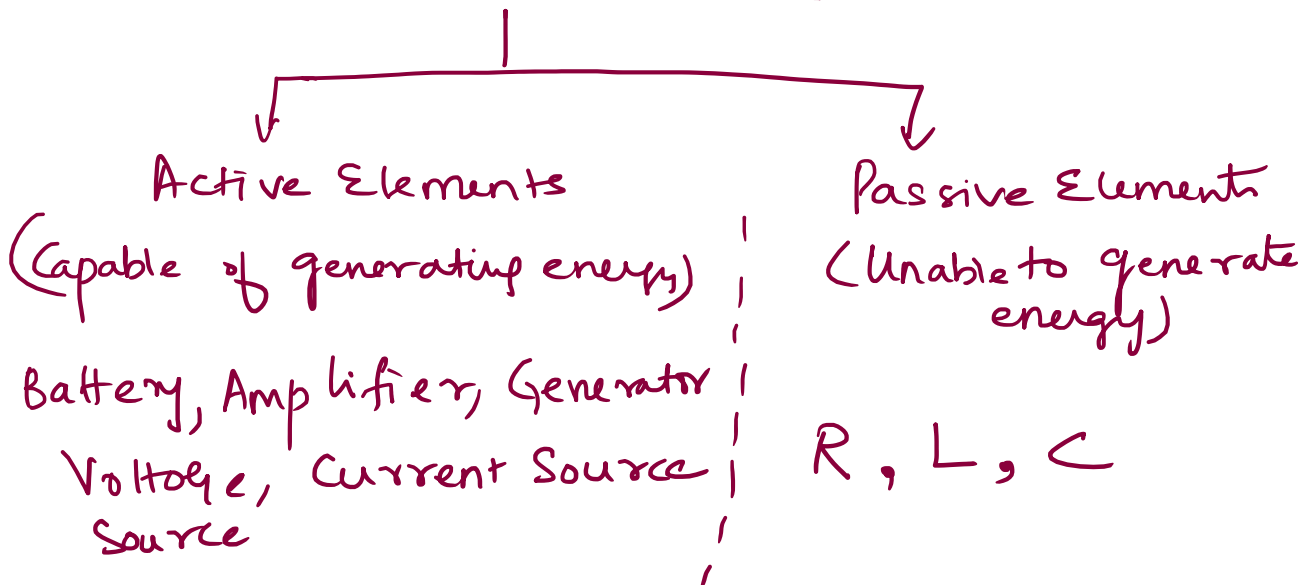 Active Elements
(Capable of generating energy)
Battery, Amplifier, Generator
Voltage, Current Source
Source
Passive Elements
(Unable to generate
energy)
R, L, C